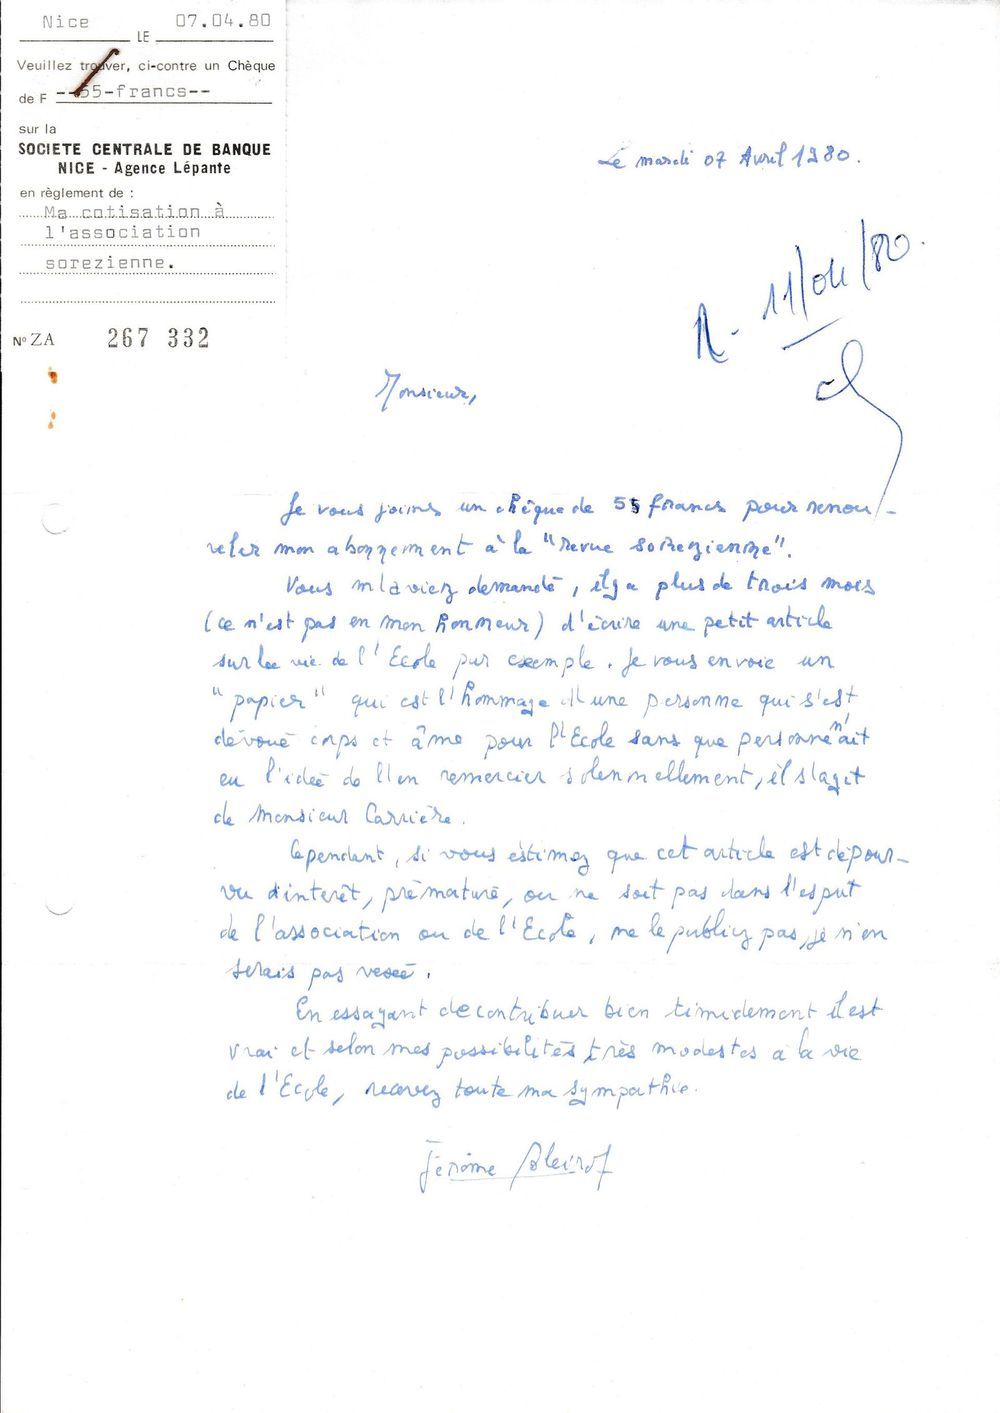 Nice 07.04.80
LE
Veuillez trouver, ci-contre un Chèque
de F --55-francs--
sur la
SOCIETE CENTRALE DE BANQUE
NICE - Agence Lépante
en règlement de :
Ma cotisation à
l'association
sorezienne.
N° ZA 267 332
Le mardi 07 Avril 1980.
R - 11/04/80.
Monsieur,
Je vous joins un chèque de 55 francs pour renou-
veler mon abonnement à la "revue sorezienne".
Vous m'aviez demandé, il y a plus de trois mois
(ce n'est pas en mon honneur) d'écrire une petit article
sur la vie de l'Ecole par exemple. Je vous envoie un
"papier" qui est l'hommage d'une personne qui s'est
dévoué corps et âme pour l'Ecole sans que personne n'ait
eu l'idée de l'en remercier solennellement, il s'agit
de Monsieur Carrière.
Cependant, si vous éstimez que cet article est dépour-
vu d'interêt, prématuré, ou ne soit pas dans l'esprit
de l'association ou de l'Ecole, ne le publiez pas, je n'en
serais pas vexé.
En essayant de contribuer bien timidement il est
vrai et selon mes possibilités très modestes à la vie
de l'Ecole, recevez toute ma sympathie.
Jérôme